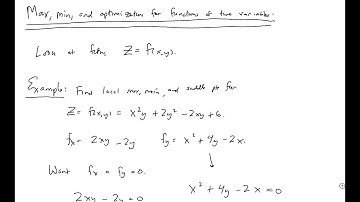 Max, min, and optimization for functions of two variables.
Look at fctns z = f(x,y).
Example: Find local max, min, and saddle pt for
z = f(x,y) = x²y + 2y² - 2xy + 6.
fx = 2xy - 2y fy = x² + 4y - 2x.
Want fx = fy = 0. ↓
2xy - 2y = 0 x² + 4y - 2x = 0